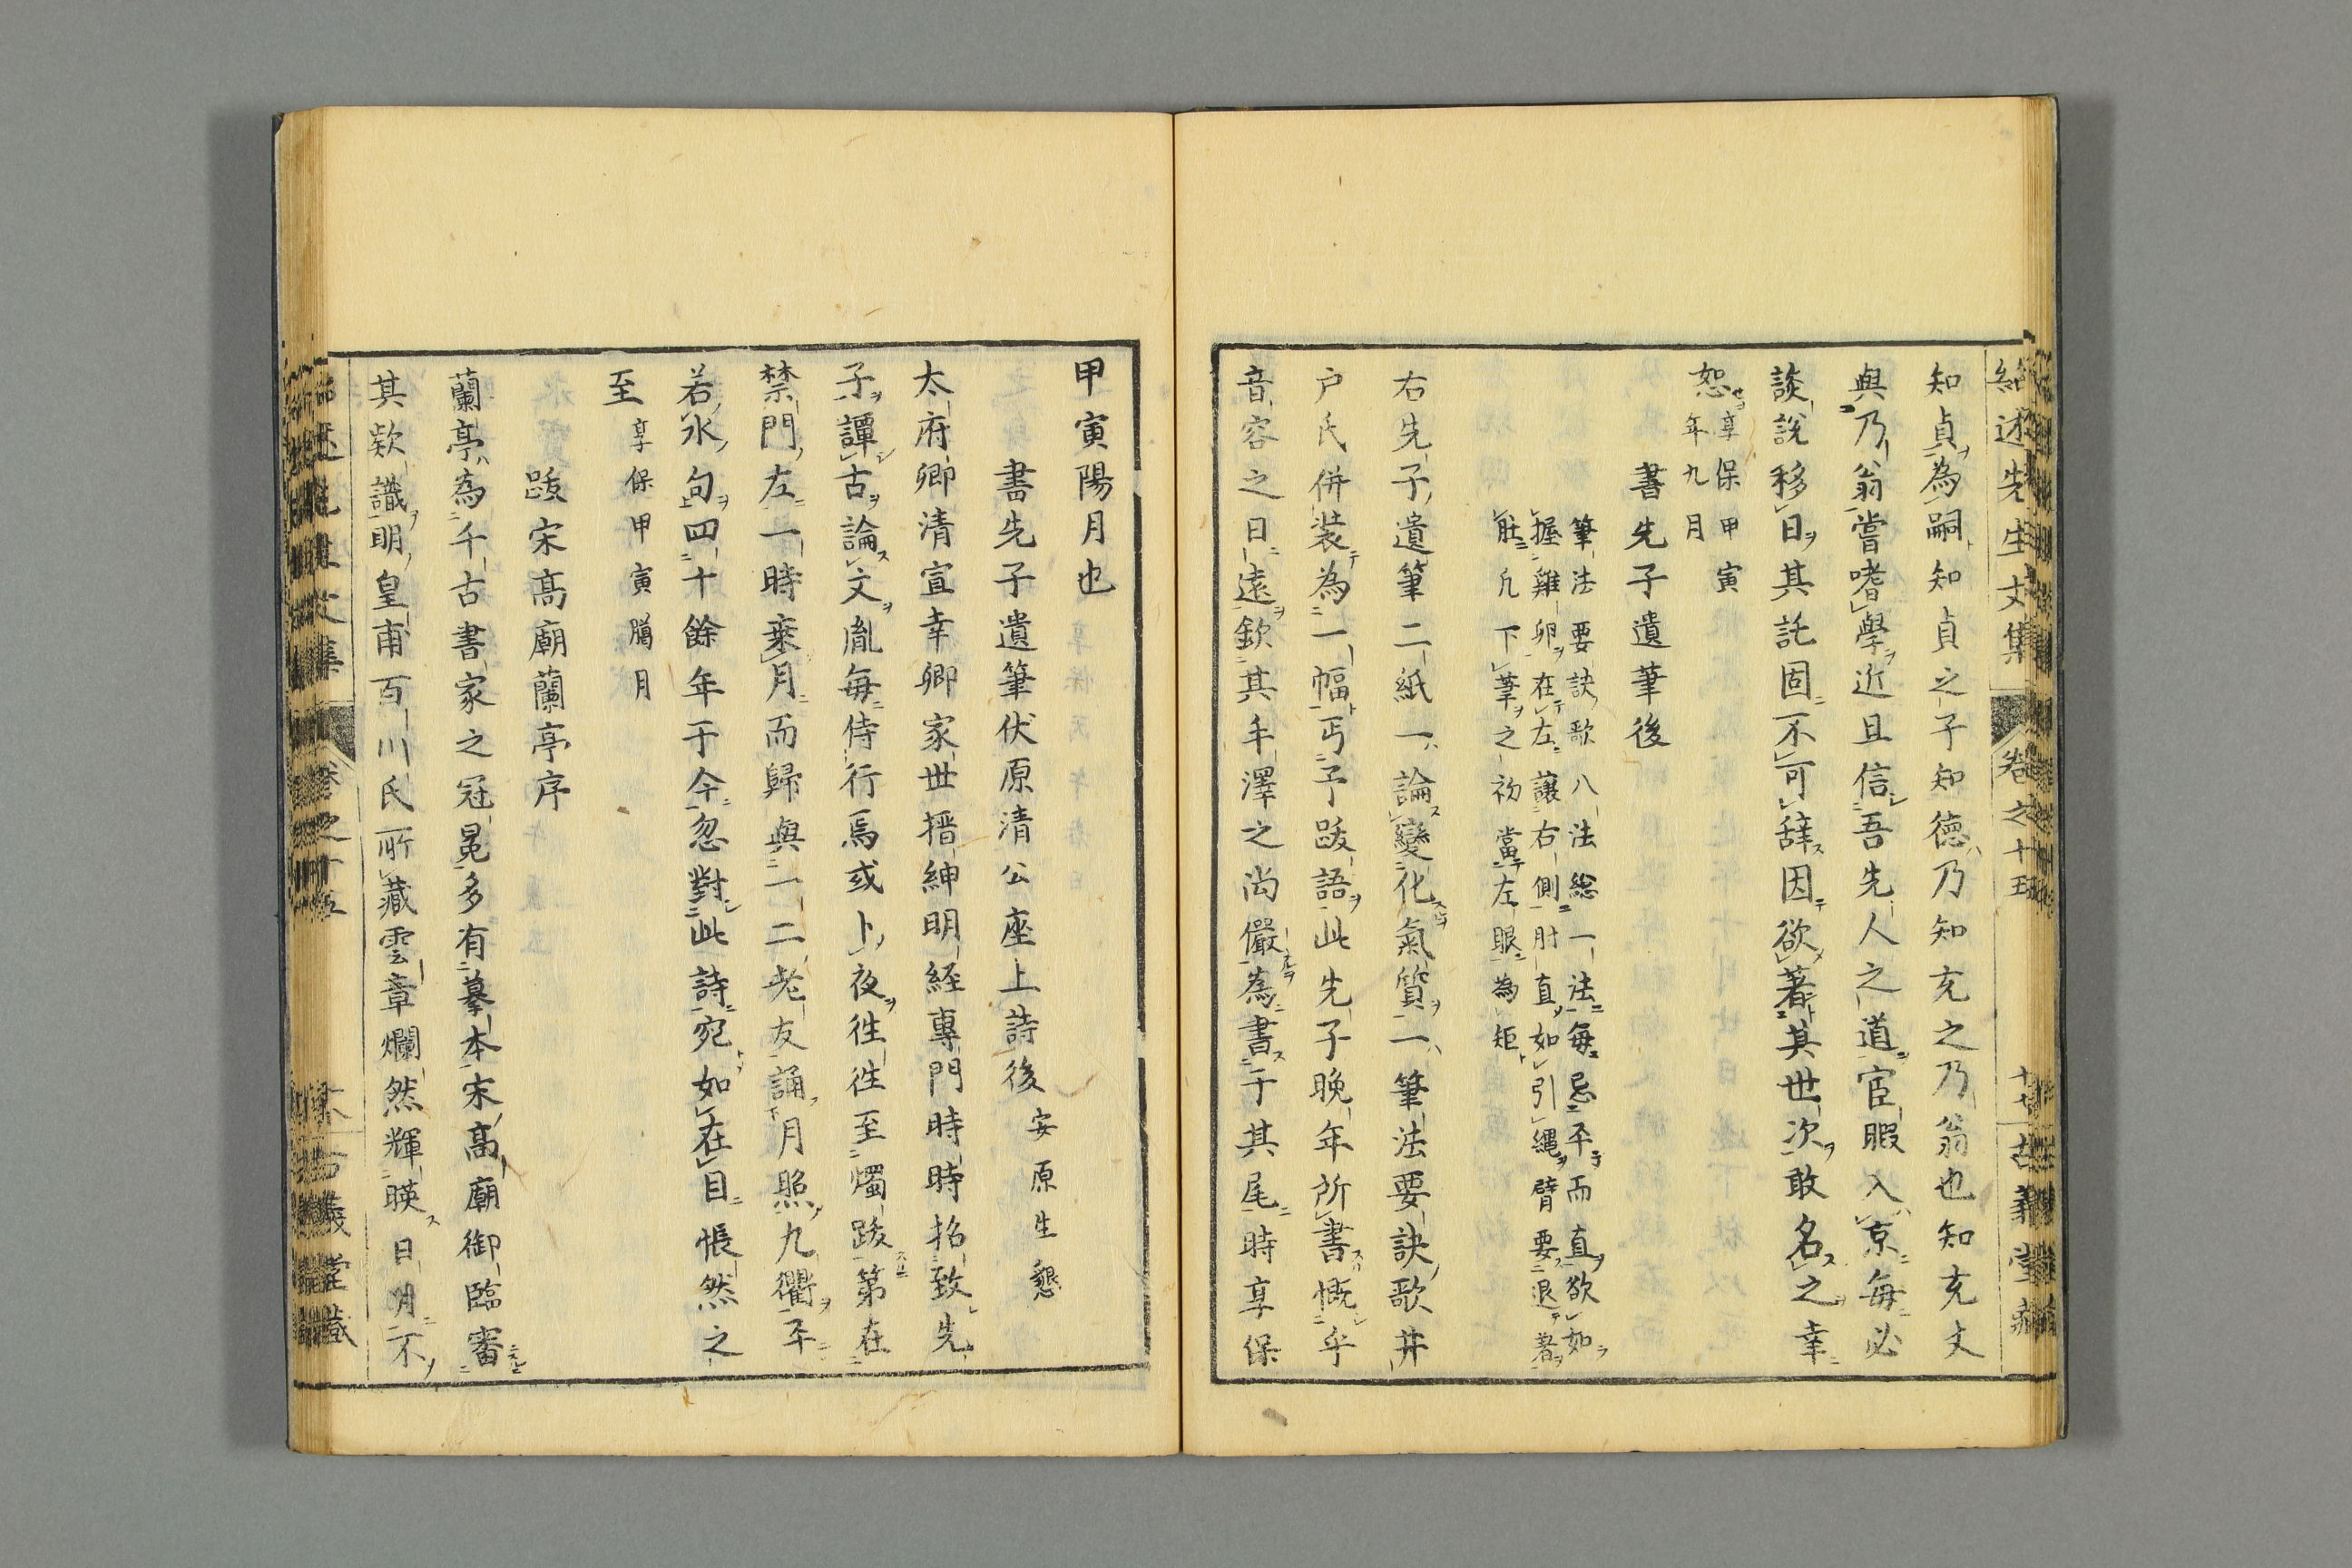 紹述先生文集 卷之十五 古義堂藏
知貞為嗣知貞之子知德乃知充之乃翁也知充丈
與乃翁嘗嗜學近且信吾先人之道宦暇入京每必
談說移日其託固不可辞因欲著其世次敢名之幸
恕 享保甲寅年九月
書先子遺筆後
筆法要訣歌八法総一法每忌平而直欲如
握雞卵在左讓右側肘直如引縄臂要退著
肚凢下筆之初當左眼為矩
右先子遺筆二紙一論變化氣質一筆法要訣歌井
户氏併装為一幅丐予跋語此先子晚年所書慨乎
音容之日遠欽其手澤之尚儼為書于其尾時享保
甲寅陽月也
書先子遺筆伏原清公座上詩後 安原生懇
太府卿清宣幸卿家世搢紳明経專門時時招致先
子譚古論文胤每侍行焉或卜夜徃徃至燭跋第在
禁門左一時乘月而歸與一二老友誦月照九衢平
若水句四十餘年于今忽對此詩宛如在目悵然之
至 享保甲寅臈月
跋宋髙廟蘭亭序
蘭亭為千古書家之冠冕多有摹本宋髙廟御臨審
其欵識明皇甫百川氏所藏雲章爛然輝暎日月不
紹述先生文集 卷之十五 古義堂藏